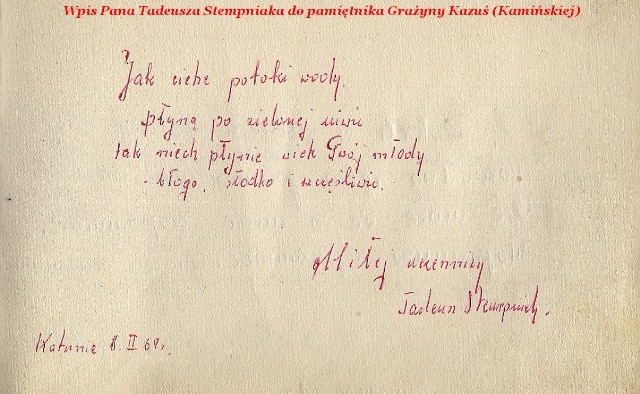 Wpis Pana Tadeusza Stempniaka do pamiętnika Grażyny Kazuś (Kamińskiej)
Jak ciche potoki wody
płyną po zielonej niwie
tak niech płynie wiek Twój młody
błogo, słodko i szczęśliwie.
Miłej uczennicy
Tadeusz Stempniak.
8. II 6